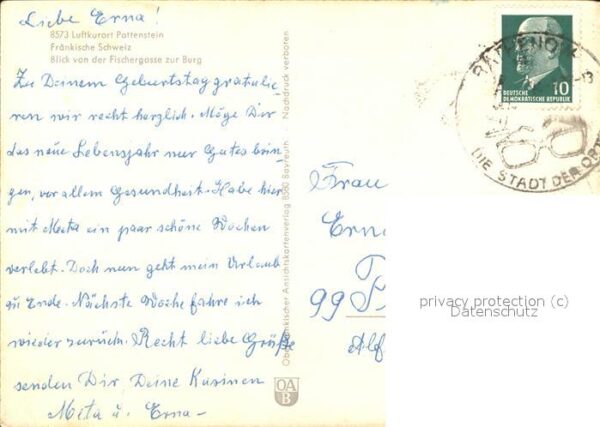 Liebe Erna!
8573 Luftkurort Pottenstein
Fränkische Schweiz
Blick von der Fischergasse zur Burg
Zu Deinem Geburtstag gratulie-
ren wir recht herzlich. Möge Dir
das neue Lebensjahr nur Gutes brin-
gen, vor allem Gesundheit. Habe hier
mit Meta ein paar schöne Wochen
verlebt. Doch nun geht mein Urlaub
zu Ende. Nächste Woche fahre ich
wieder zurück. Recht liebe Grüße
senden Dir, Deine Kusinen
Meta u. Erna-
Oberfränkischer Ansichtskartenverlag 8580 Bayreuth
Nachdruck verboten
OA
B
10
DEUTSCHE
DEMOKRATISCHE REPUBLIK
RATHENOW
DIE STADT DER OPT
Frau
Erna
99
privacy protection (c)
Datenschutz